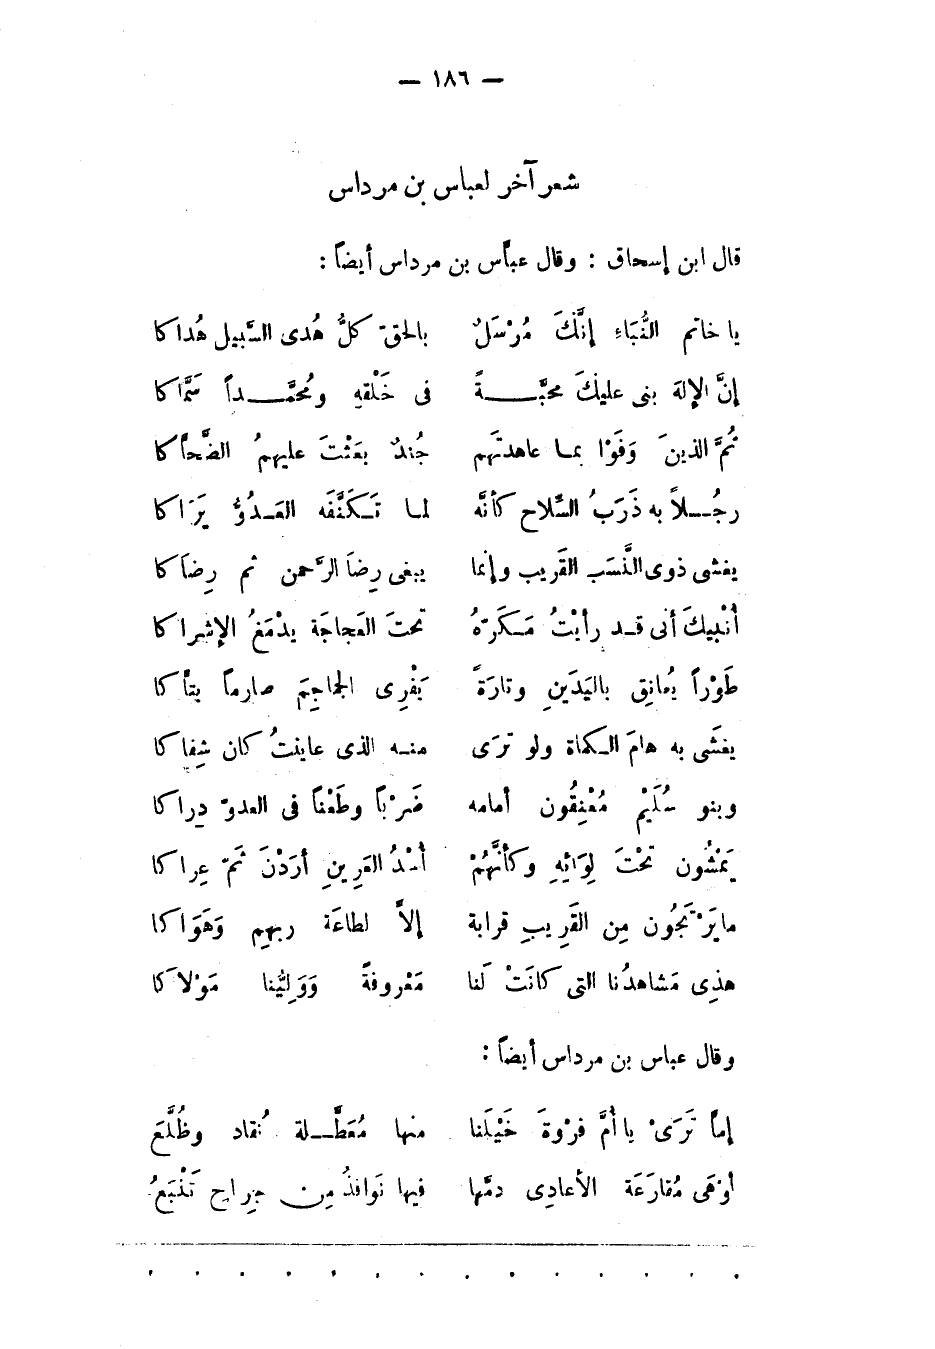 — ١٨٦ —
شعر آخر لعباس بن مرداس
قال ابن إسحاق : وقال عبَّاس بن مرداس أيضاً :
يا خاتم النُّبَاءِ إنَّكَ مُرْسَلٌ بالحقّ كلُّ هُدى السَّبيل هُداكا
إنَّ الإلهَ بنى عليكَ محبَّةً فى خَلْقهِ ومُحمَّداً سَمَّاكا
ثُمَّ الذينَ وَفَوْا بما عاهدتَهم جُندٌ بعَثْتَ عليهمُ الضَّحَّاكا
رجُلاً به ذَرَبُ السِّلاح كأنَّه لما تَكَنَّفَه العَدُوُّ يَرَاكا
يغشى ذوى النَّسَب القَريب وإنما يبغى رِضاَ الرَّحمن ثم رِضاَكا
أُنْبِيكَ أنى قد رأيْتُ مَكَرّهُ تحتَ العَجاجَة يدْمَغُ الإشراكا
طَوْراً يُعانِق باليَدَينِ وتارَةً يَفْرِى الجماجِمَ صارماً بتاَّكا
يغشَى به هامَ الكماة ولو تَرَى منه الذى عاينتُ كان شِفاكا
وبنو سُلَيْمٍ مُعْنِقُون أمامه ضَرْباً وطَعْناً فى العدوّ دِراكا
يَمْشُون تحْتَ لِوَائِهِ وكأنَّهُمْ أُسْدُ العَرِينِ أرَدْنَ ثَمّ عِراكا
مايَرْتَجُون مِن القَرِيبِ قرابة إلاَّ لطاعَة ربهم وَهَوَاكا
هذِى مَشاهدُنا التى كانَتْ لَنا مَعْروفةً وَوَلِيُّنا مَوْلاَكا
وقال عباس بن مرداس أيضاً :
إماَّ تَرَىْ يا أُمَّ فرْوةَ خَيْلَنا منها مُعَطَّلة تُقاد وظُلَّعَ
أوْهَى مُقارَعَة الأعادِى دمَّها فيها نَوافذُ مِن جِراحٍ تَنْبَعُ